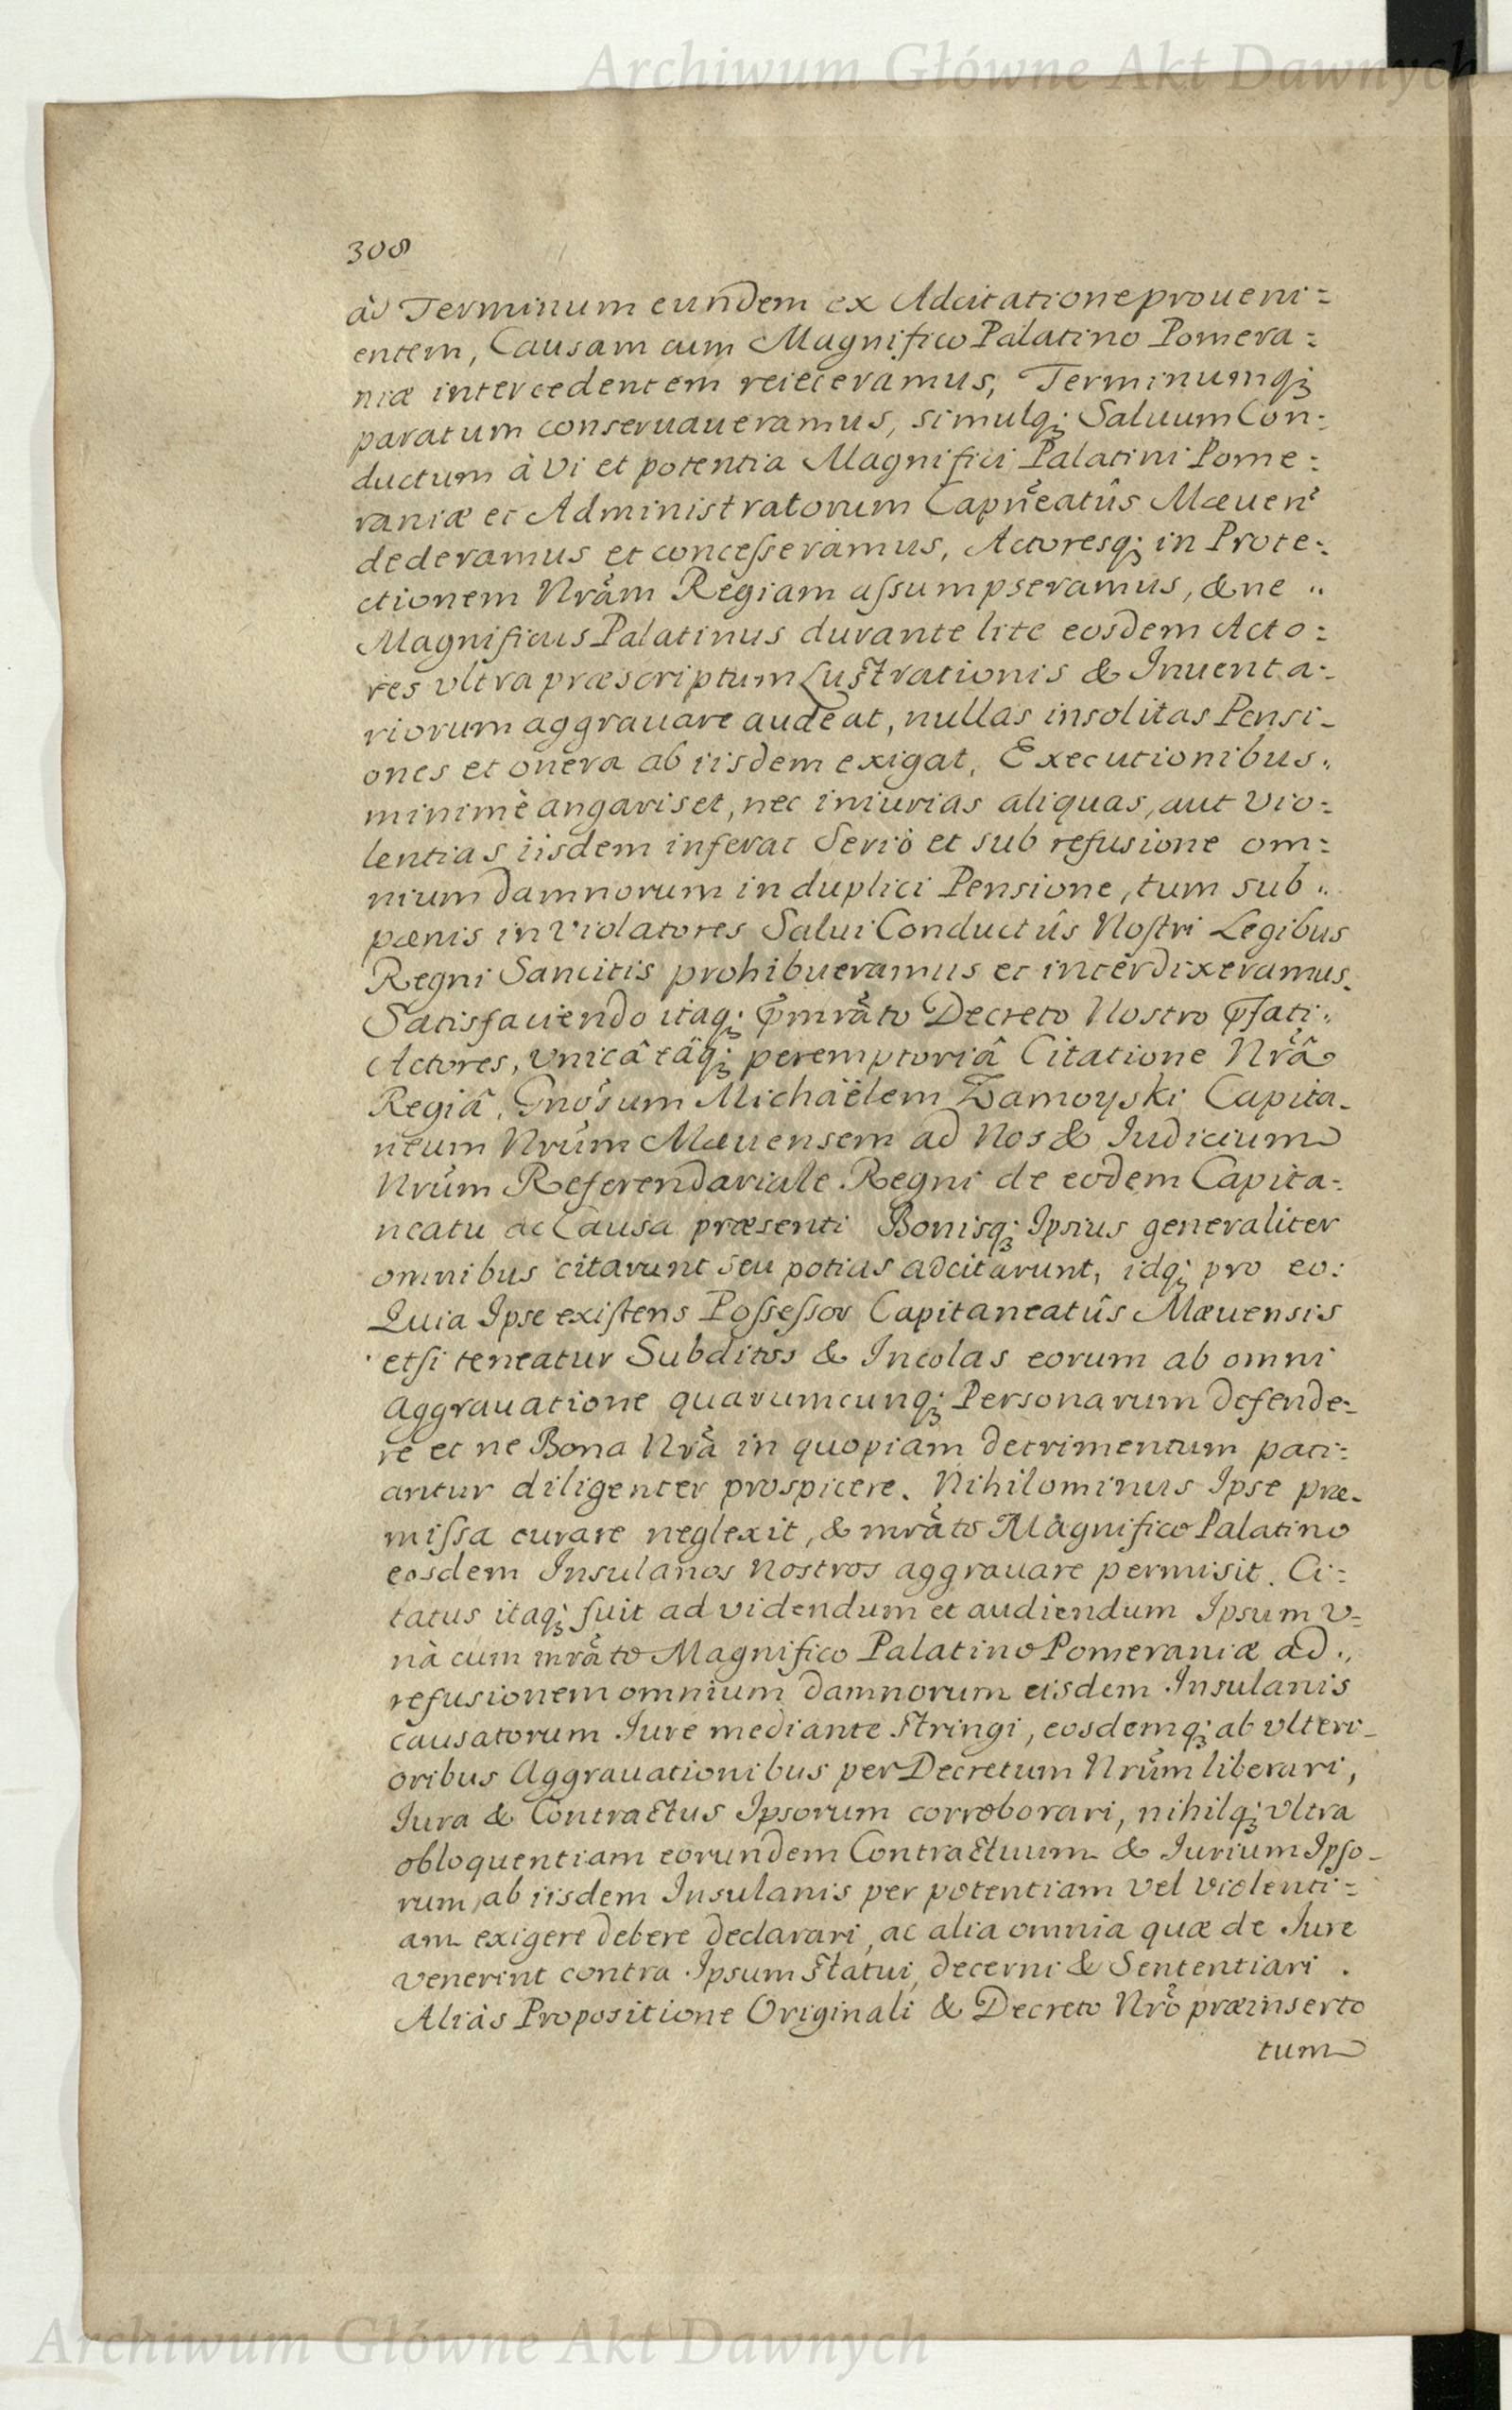 Archiwum Główne Akt Dawnych
308
ad Terminum eundem ex Adcitatione proueni=
entem, Causam cum Magnifico Palatino Pomera=
niæ intercedentem reieceramus, Terminumq;
paratum conseruaueramus, simulq; Saluum Con=
ductum à vi et potentia Magnifici Palatini Pome=
raniæ et Administratorum Capneatûs Mæuen
dederamus et concesseramus, Actoresq; in Prote=
ctionem Nram Regiam assumpseramus, & ne
Magnificus Palatinus durante lite eosdem Acto=
res vltra præscriptum Lustrationis & Inuenta=
riorum aggrauare audeat, nullas insolitas Pensi-
ones et onera ab iisdem exigat, Executionibus
minimè angariset, nec iniurias aliquas, aut vio=
lentias iisdem inferat Seriò et sub refusione om=
nium damnorum in duplici Pensione, tum sub
pœnis in violatores Salui Conductûs Nostri Legibus
Regni Sancitis prohibueramus et interdixeramus.
Satisfaciendo itaq; pmrato Decreto Nostro pfati
Actores, vnicâ eâq; peremptoriâ Citatione Nrâ
Regiâ, Gnosum Michaëlem Zamoyski Capita-
neum Nrum Mæuensem ad Nos & Iudicium
Nrum Referendariale Regni de eodem Capita=
neatu ac Causa præsenti Bonisq; Ipsius generaliter
omnibus citarunt seu potius adcitarunt, idq; pro eo:
Quia Ipse existens Possessor Capitaneatûs Mæuensis
etsi teneatur Subditos & Incolas eorum ab omni
aggrauatione quarumcunq; Personarum defende=
re et ne Bona Nra in quopiam detrimentum pati=
antur diligenter prospicere. Nihilominus Ipse præ-
missa curare neglexit, & mrato Magnifico Palatino
eosdem Insulanos Nostros aggrauare permisit. Ci=
tatus itaq; fuit ad videndum et audiendum Ipsum v=
nà cum mrato Magnifico Palatino Pomeraniæ ad
refusionem omnium damnorum eisdem Insulanis
causatorum Iure mediante stringi, eosdemq; ab vlteri-
oribus Aggrauationibus per Decretum Nrum liberari,
Iura & Contractus Ipsorum corroborari, nihilq; vltra
obloquentiam eorundem Contractuum & Iurium Ipso-
rum, ab iisdem Insulanis per potentiam vel violenti=
am exigere debere declarari, ac alia omnia quæ de Iure
venerint contra Ipsum statui, decerni & Sententiari.
Aliàs Propositione Originali & Decreto Nro præinserto
tum
Archiwum Główne Akt Dawnych